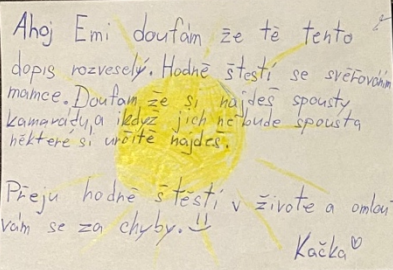 Ahoj Emi doufám že tě tento
dopis rozveselý. Hodně štestí se svěřováním
mamce. Doufam že si najdeš spousty
kamarádu, a ikdyž jich nebude spousta
některé si určitě najdeš.
Přeju hodně štěstí v živote a omlou
vám se za chyby.
Kačka